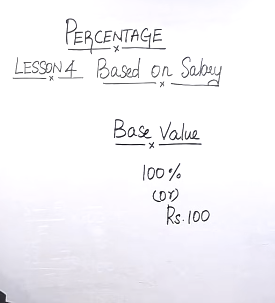 PERCENTAGE
LESSON 4 Based on Salary
Base Value
100%
(or)
Rs. 100